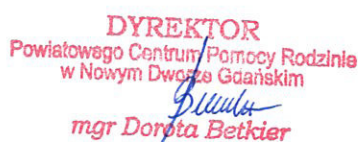 DYREKTOR
Powiatowego Centrum Pomocy Rodzinie
w Nowym Dworze Gdańskim
mgr Dorota Betkier